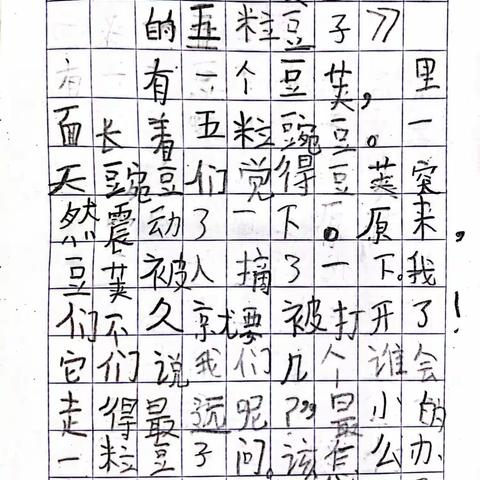 的五粒豆子》
有一个豆荚，里
面长着五粒豌豆。一
天豌豆们觉得豆荚突
然震动了一下。原来，
豆荚被人摘了一下。我
们不久就要被打开了！
它们说我们几个谁会
走得最远呢？”最小的
一粒豆子问。该怎么办